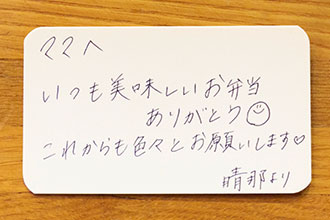 ママへ
いつも美味しいお弁当
ありがとう☺
これからも色々とお願いします♡
晴那より